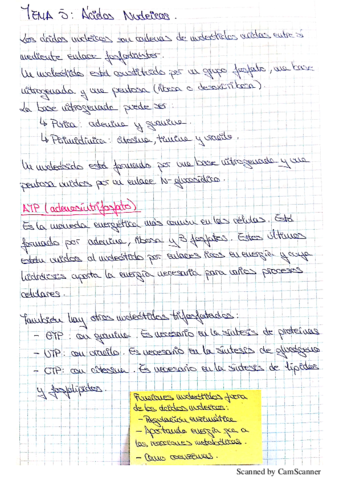 TEMA 5: Ácidos Nucleicos.
Los ácidos nucleicos son cadenas de nucleótidos unidas entre sí
mediante enlace fosfodiéster.
Un nucleótido está constituido por un grupo fosfato, una base
nitrogenada y una pentosa (ribosa o desoxirribosa).
La base nitrogenada puede ser:
↳ Púrica: adenina y guanina.
↳ Pirimidínica: citosina, timina y uracilo.
Un nucleósido está formado por una base nitrogenada y una
pentosa unidos por un enlace N-glucosídico.
ATP (adenosíntrifosfato)
Es la moneda energética más común en las células. Está
formado por adenina, ribosa y 3 fosfatos. Estos últimos
están unidos al nucleótido por enlaces ricos en energía y cuya
hidrólisis aporta la energía necesaria para varios procesos
celulares.
También hay otros nucleótidos trifosfatados:
- GTP: con guanina. Es necesario en la síntesis de proteínas
- UTP: con uracilo. Es necesario en la síntesis de glucógeno
- CTP: con citosina. Es necesario en la síntesis de lípidos
y fosfolípidos.
Funciones nucleótidos fuera
de los ácidos nucleicos:
- Regulación enzimática
- Aportando energía a
las reacciones metabólicas.
- Como coenzimas.
Scanned by CamScanner